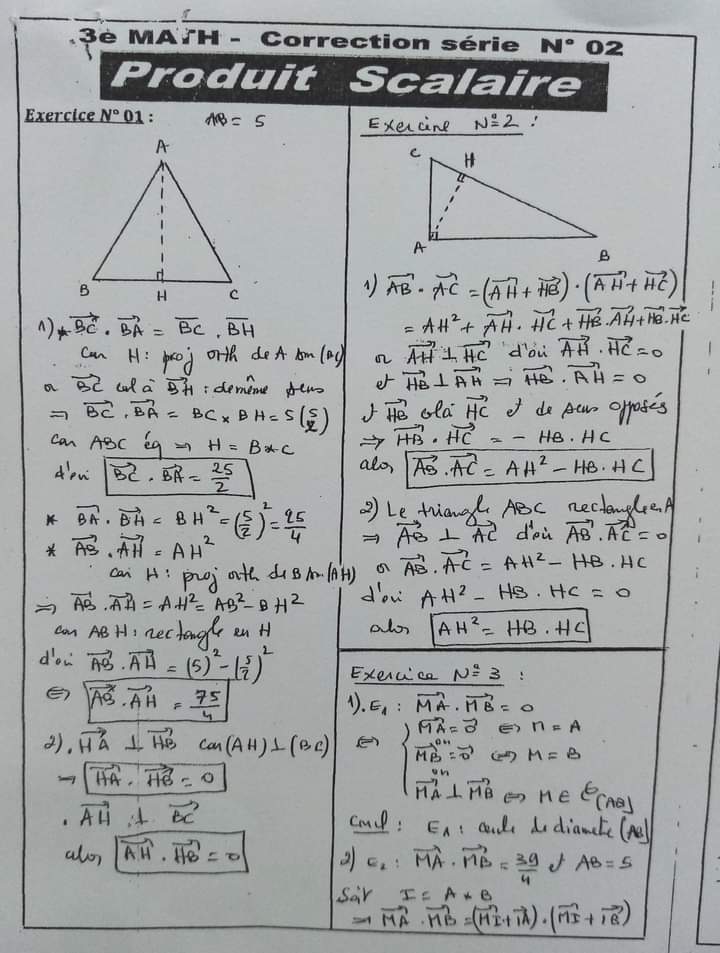 3è MATH - Correction série N° 02
Produit Scalaire
Exercice N° 01 : AB = 5
A
B
H
C
1) * BC⃗ . BA⃗ = BC⃗ . BH⃗
car H : proj orth de A sur (BC)
or BC⃗ col à BH⃗ : de même sens
⇒ BC⃗ . BA⃗ = BC × BH = 5 (5/2)
car ABC éq ⇒ H = B * C
d'où BC⃗ . BA⃗ = 25/2
* BA⃗ . BH⃗ = BH² = (5/2)² = 25/4
* AB⃗ . AH⃗ = AH²
car H : proj orth de B sur (AH)
⇒ AB⃗ . AH⃗ = AH² = AB² - BH²
car ABH : rectangle en H
d'où AB⃗ . AH⃗ = (5)² - (5/2)²
⇔ AB⃗ . AH⃗ = 75/4
2) . HA⃗ ⊥ HB⃗ car (AH) ⊥ (BC)
⇒ HA⃗ . HB⃗ = 0
. AH⃗ ⊥ BC⃗
alors AH⃗ . HB⃗ = 0
Exercice N° 2 :
C
H
A
B
1) AB⃗ . AC⃗ = (AH⃗ + HB⃗) . (AH⃗ + HC⃗)
= AH² + AH⃗ . HC⃗ + HB⃗ . AH⃗ + HB⃗ . HC⃗
or AH⃗ ⊥ HC⃗ d'où AH⃗ . HC⃗ = 0
et HB⃗ ⊥ AH⃗ ⇒ HB⃗ . AH⃗ = 0
et HB⃗ col à HC⃗ et de sens opposés
⇒ HB⃗ . HC⃗ = - HB . HC
alors AB⃗ . AC⃗ = AH² - HB . HC
2) Le triangle ABC rectangle en A
⇒ AB⃗ ⊥ AC⃗ d'où AB⃗ . AC⃗ = 0
or AB⃗ . AC⃗ = AH² - HB . HC
d'où AH² - HB . HC = 0
alors AH² = HB . HC
Exercice N° 3 :
1) . E₁ : MA⃗ . MB⃗ = 0
⇔ { MA⃗ = 0⃗ ⇔ M = A
ou
MB⃗ = 0⃗ ⇔ M = B
ou
MA⃗ ⊥ MB⃗ ⇔ M ∈ 𝒞[AB]
Concl : E₁ : cercle de diamètre [AB]
2) E₂ : MA⃗ . MB⃗ = 39/4 et AB = 5
Soit I = A * B
⇒ MA⃗ . MB⃗ = (MI⃗ + IA⃗) . (MI⃗ + IB⃗)